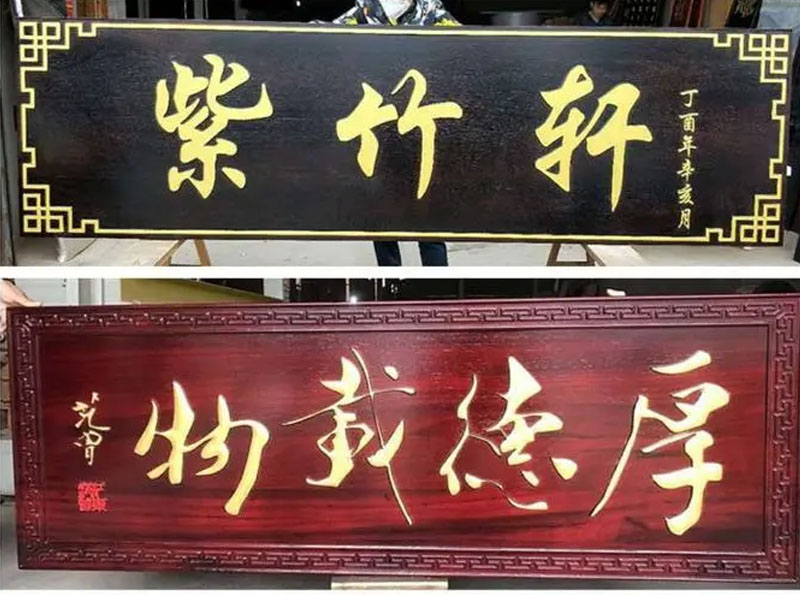 紫竹轩
丁酉年辛亥月
厚德载物
范曾